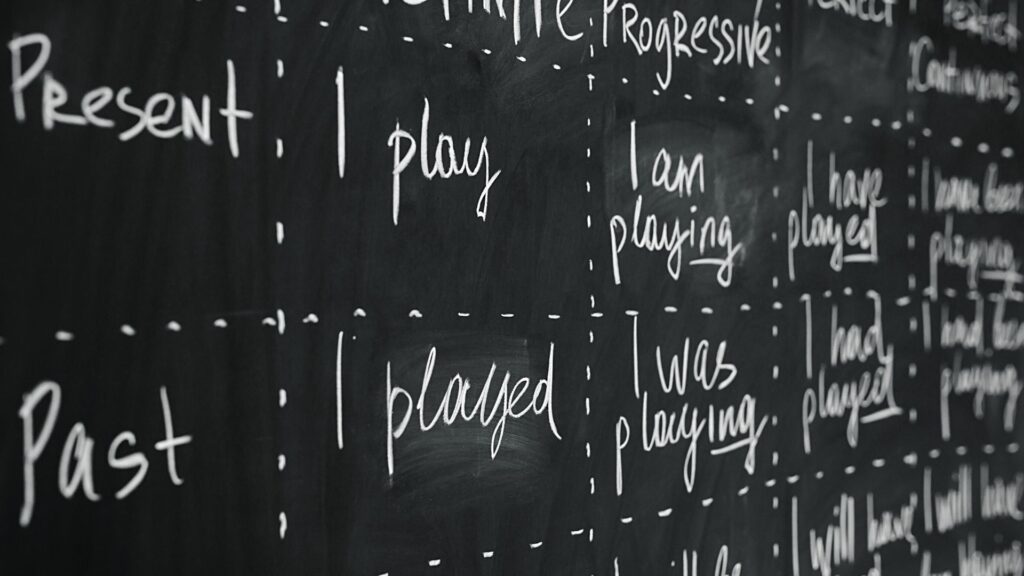 Progressive
Continuous
Present
I play
I am
playing
I have
played
playing
Past
I played
I was
playing
I had
played
I had been
playing
I will have
I will have